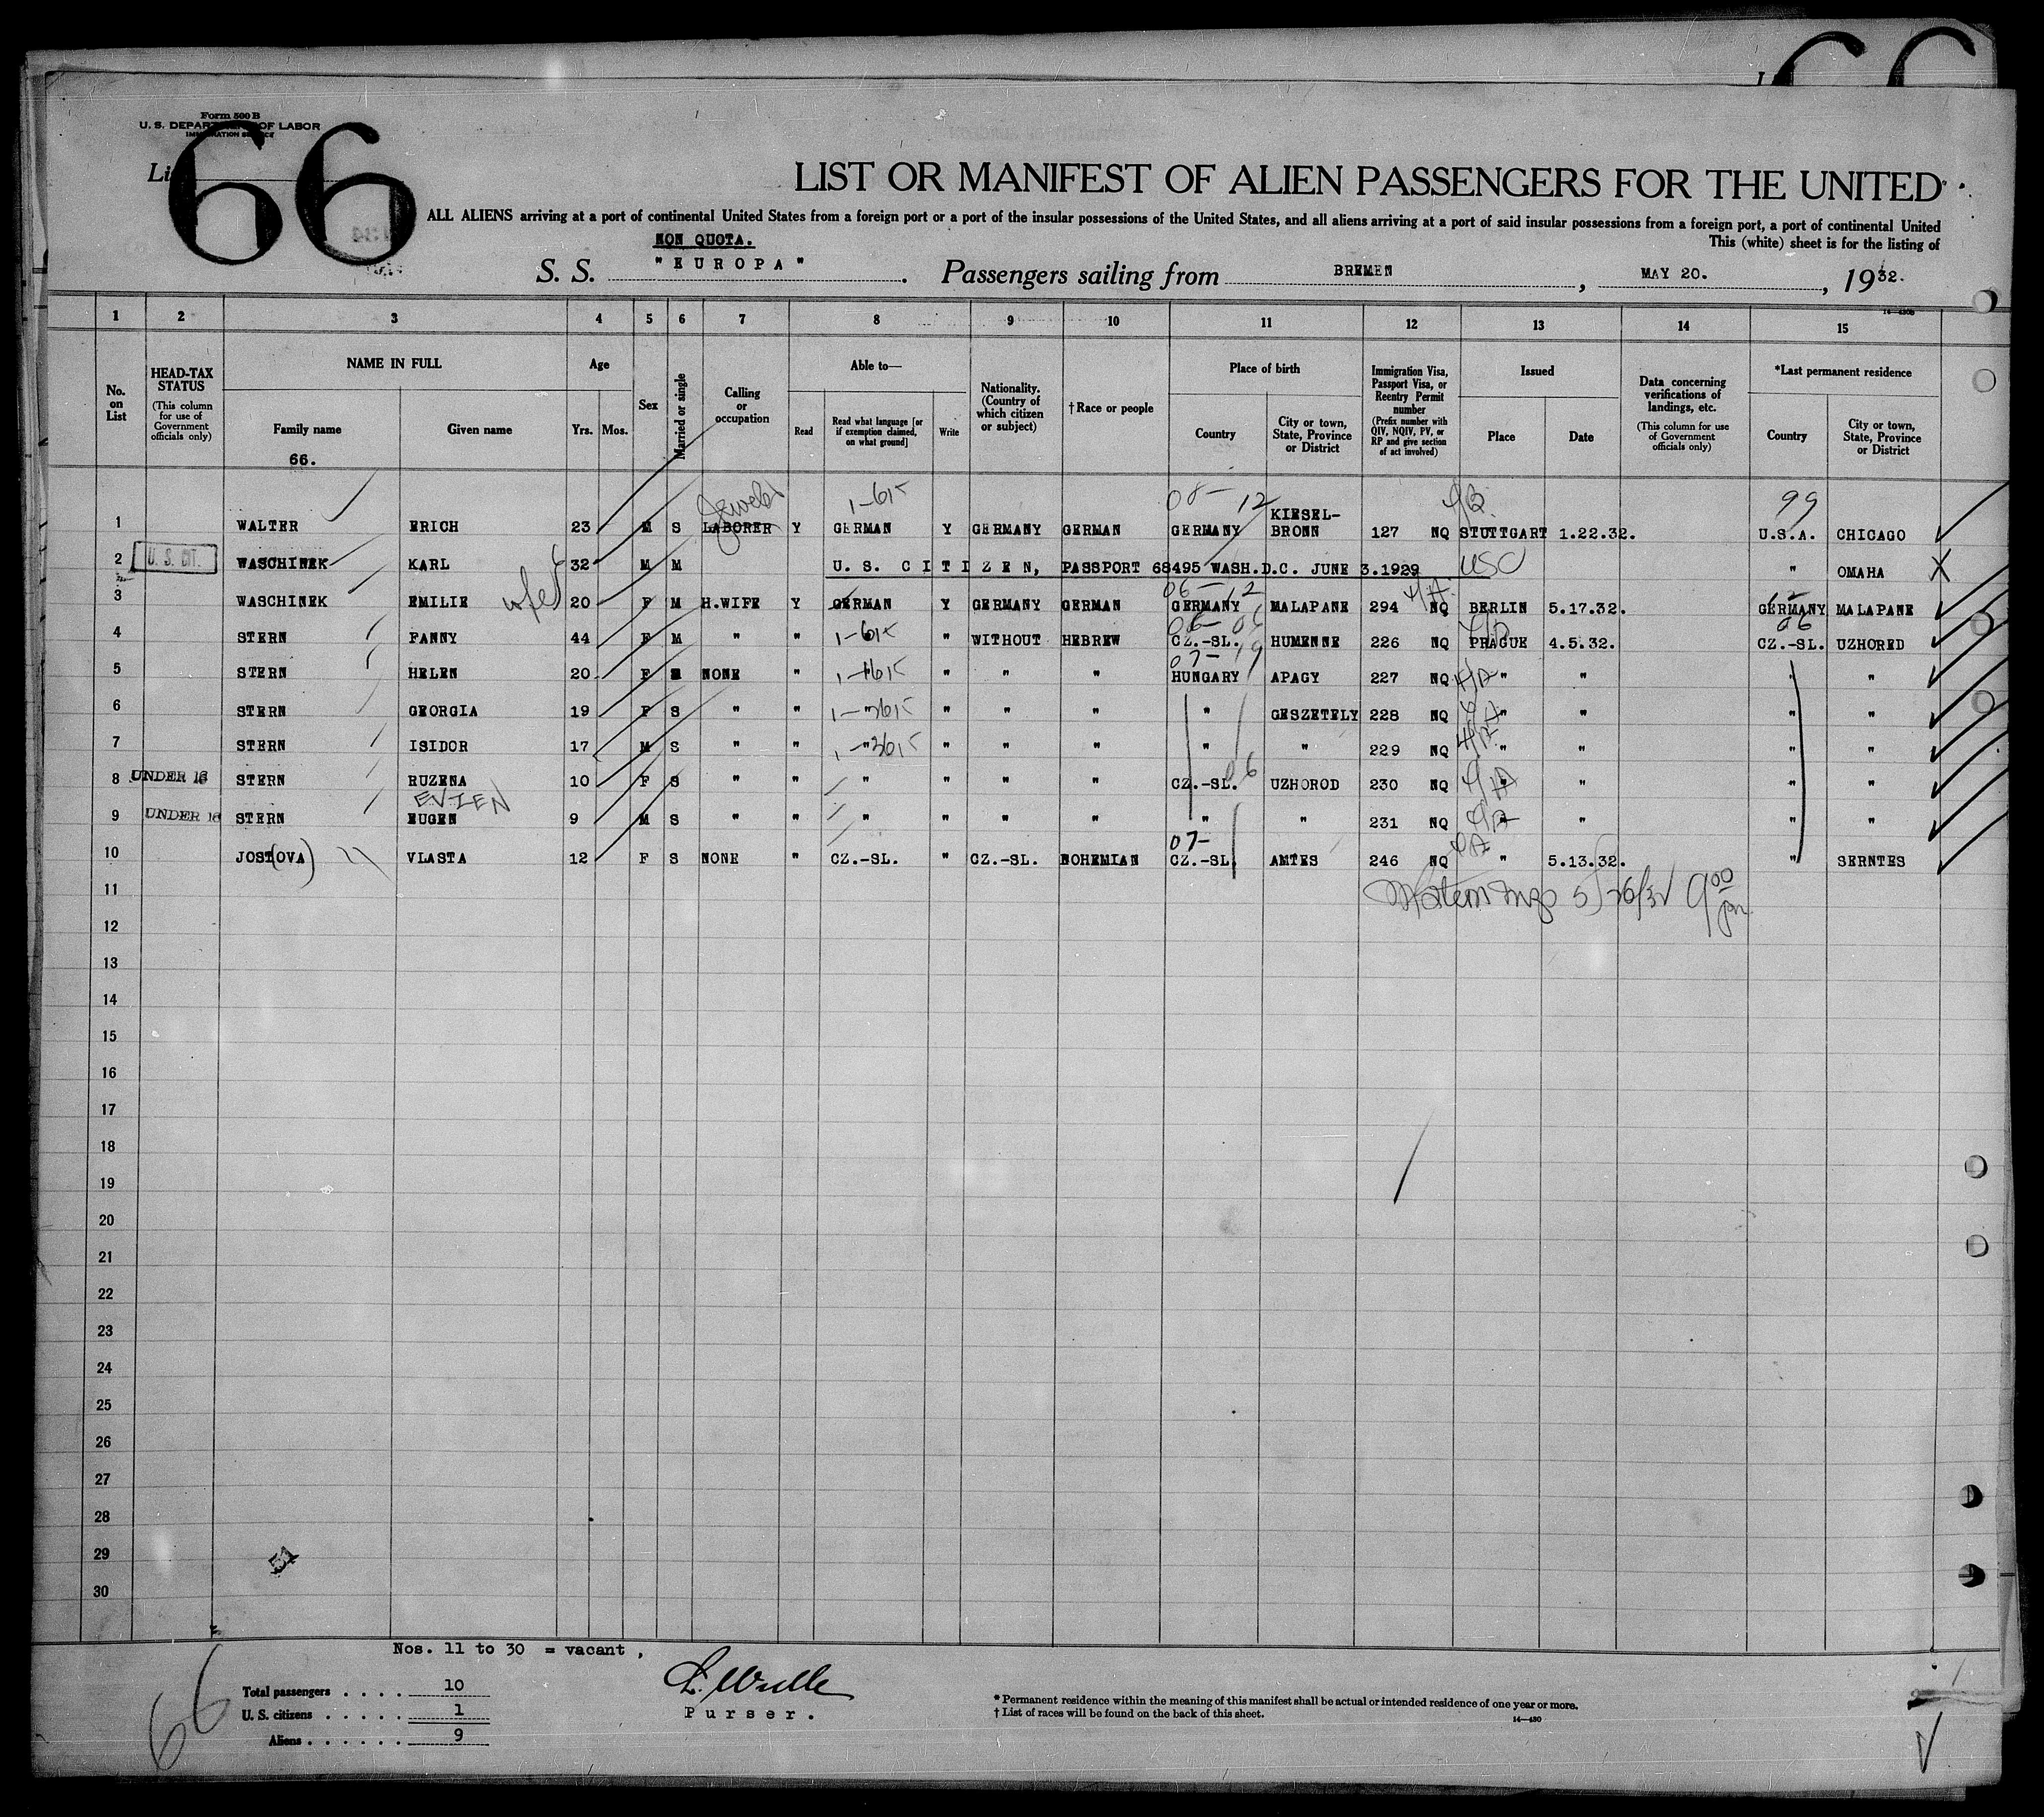 Form 500 B
U. S. DEPARTMENT OF LABOR
IMMIGRATION SERVICE
66
LIST OR MANIFEST OF ALIEN PASSENGERS FOR THE UNITED
ALL ALIENS arriving at a port of continental United States from a foreign port or a port of the insular possessions of the United States, and all aliens arriving at a port of said insular possessions from a foreign port, a port of continental United
This (white) sheet is for the listing of
NON QUOTA.
S. S. "EUROPA". Passengers sailing from BREMEN, MAY 20., 1932.
14—430B
1 2 3 4 5 6 7 8 9 10 11 12 13 14 15
No. on List
HEAD-TAX STATUS (This column for use of Government officials only)
NAME IN FULL
Family name Given name
66.
Age
Yrs. Mos.
Sex
Married or single
Calling or occupation
Able to—
Read Read what language [or if exemption claimed, on what ground] Write
Nationality. (Country of which citizen or subject)
† Race or people
Place of birth
Country City or town, State, Province or District
Immigration Visa, Passport Visa, or Reentry Permit number (Prefix number with QIV, NQIV, PV, or RP and give section of act involved)
Issued
Place Date
Data concerning verifications of landings, etc. (This column for use of Government officials only)
*Last permanent residence
Country City or town, State, Province or District
08- 12 99
1 WALTER ERICH 23 M S LABORER Y GERMAN Y GERMANY GERMAN GERMANY KIESEL-BRONN 127 NQ STUTTGART 1.22.32. U.S.A. CHICAGO
2 U. S. CIT. WASCHINEK KARL 32 M M U. S. CITIZEN, PASSPORT 68495 WASH.D.C. JUNE 3.1929 USC " OMAHA X
06- 12 12
3 WASCHINEK EMILIE 20 F M H.WIFE Y GERMAN Y GERMANY GERMAN GERMANY MALAPANE 294 NQ BERLIN 5.17.32. GERMANY MALAPANE
06- 06 06
4 STERN FANNY 44 F M " " " WITHOUT HEBREW CZ.-SL. HUMENNE 226 NQ PRAGUE 4.5.32. CZ.-SL. UZHORED
07- 19
5 STERN HELEN 20 F NONE " " " " HUNGARY APAGY 227 NQ " " " "
6 STERN GEORGIA 19 F S " " " " " " " GESZETELY 228 NQ " " " "
7 STERN ISIDOR 17 M S " " " " " " " " 229 NQ " " " "
8 UNDER 16 STERN RUZENA 10 F S " " " " " " CZ.-SL. 06 UZHOROD 230 NQ " " " "
EVZEN
9 UNDER 16 STERN EUGEN 9 M S " " " " " " " " 231 NQ " " " "
07-
10 JOST(OVA) VLASTA 12 F S NONE " CZ.-SL. " CZ.-SL. BOHEMIAN CZ.-SL. AMTES 246 NQ " 5.13.32. " SERNTES
11 5/26/32 9 00
12
13
14
15
16
17
18
19
20
21
22
23
24
25
26
27
28
29
30
Nos. 11 to 30 = vacant,
66
Total passengers . . . . 10
U. S. citizens . . . . . 1
Aliens . . . . . . 9
Purser.
* Permanent residence within the meaning of this manifest shall be actual or intended residence of one year or more.
† List of races will be found on the back of this sheet.
14—430